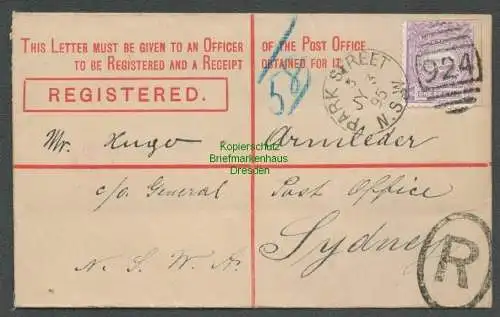 THIS LETTER MUST BE GIVEN TO AN OFFICER OF THE POST OFFICE
TO BE REGISTERED AND A RECEIPT OBTAINED FOR IT.
REGISTERED.
58
PARK STREET
N.S.W
95
924
Mr. Hugo Armleder
Kopierschutz
Briefmarkenhaus
Dresden
c/o General Post Office
Sydney
N. S. W. A.
R